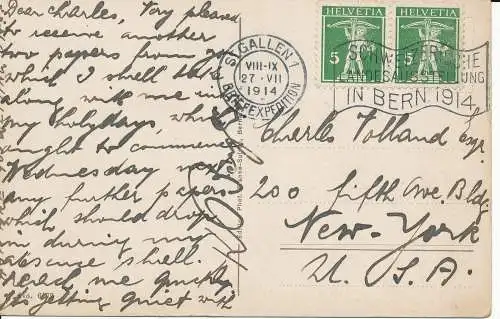 Dear Charles, Very pleased
to receive another
two papers from you
which I shall take
along with me in
my holydays, which
ought to commence
Wednesday next
any further papers
which should drop
in during my
absence shall
reach me quickly
Its getting quiet with
ST. GALLEN 1
VIII-IX
27·VII
1914
BRIEFEXPEDITION
HELVETIA
5
HELVETIA
5
SCHWEIZERISCHE
LANDESAUSSTELLUNG
IN BERN 1914
Charles Volland Esqr.
200 Fifth Ave. Bldg
New-York
U. S. A.